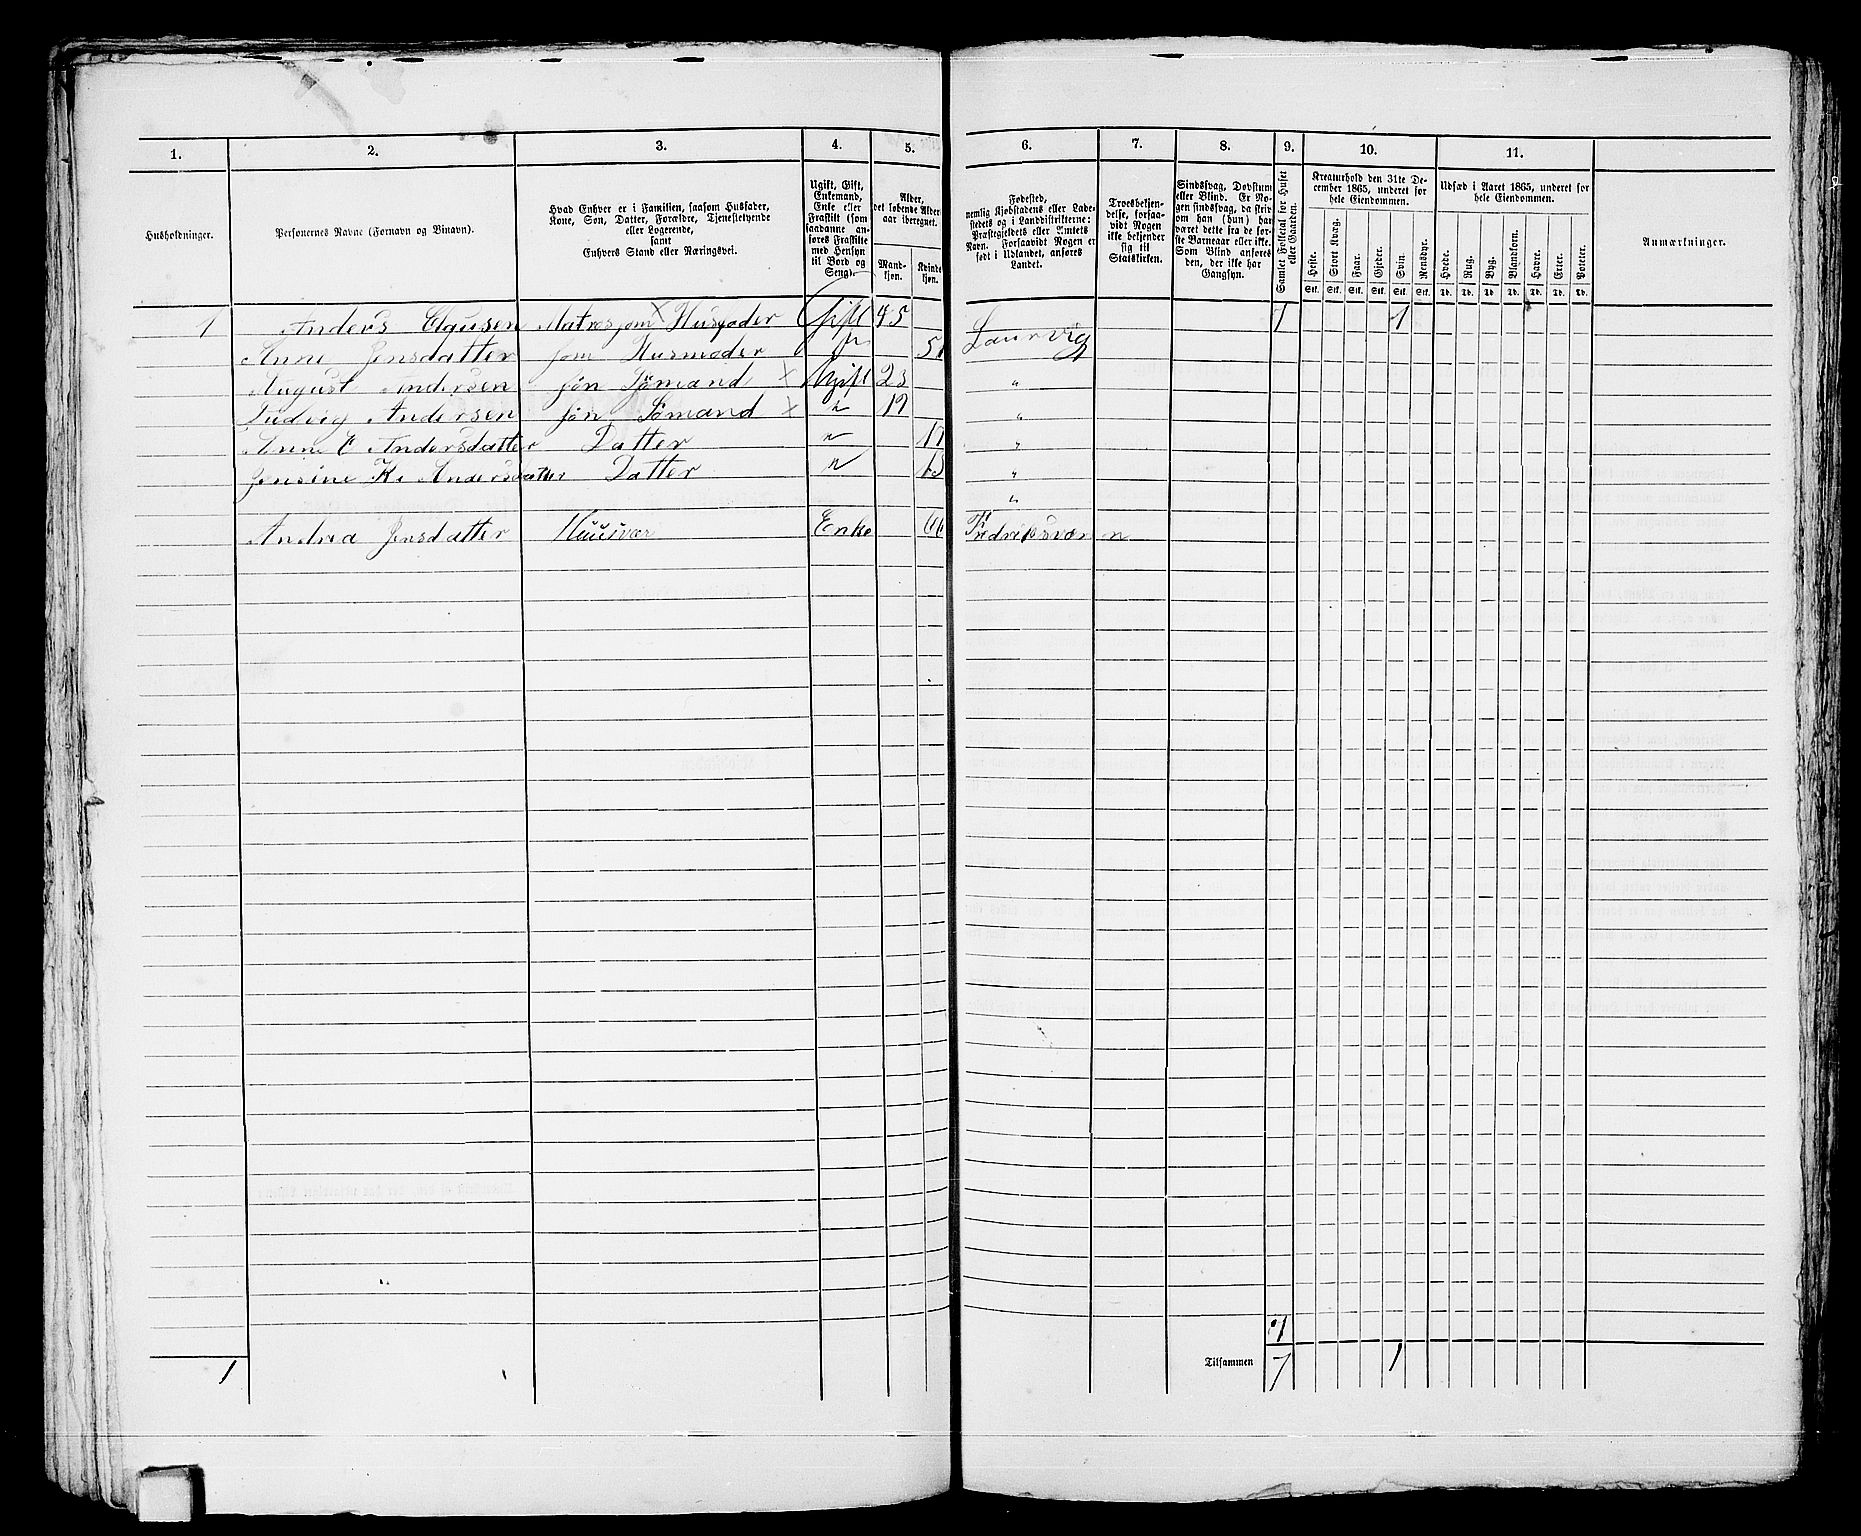 1. 2. 3. 4. 5. 6. 7. 8. 9. 10. 11.
Husholdninger.
Personernes Navne (Fornavn og Binavn).
Hvad Enhver er i Familien, saasom Husfader,
Kone, Søn, Datter, Forældre, Tjenestetyende
eller Logerende,
samt
Enhvers Stand eller Næringsvei.
Ugift, Gift,
Enkemand,
Enke eller
Fraskilt (som
saadanne an-
føres Fraskilte
med Hensyn
til Bord og
Seng).
Alder,
det løbende Alders-
aar iberegnet.
Mand-
kjøn.
Kvinde-
kjøn.
Fødested,
nemlig Kjøbstadens eller Lade-
stedets og i Landdistrikterne:
Præstegjeldets eller Amtets
Navn. Forsaavidt Nogen er
født i Udlandet, anføres
Landet.
Troesbekjen-
delse, forsaa-
vidt Nogen
ikke bekjender
sig til
Statskirken.
Sindssvag, Døvstum
eller Blind. Er No-
gen sindssvag, da skriv
om han (hun) har
været dette fra de før-
ste Barneaar eller ikke.
Som Blind anføres
den, der ikke har
Gangsyn.
Samlet Folketal for Huset
eller Gaarden.
Kreaturhold den 31te De-
cember 1865, underet for
hele Eiendommen.
Heste. Stort Kvæg. Faar. Gjeder. Svin. Rensdyr.
Stk. Stk. Stk. Stk. Stk. Stk.
Udsæd i Aaret 1865, underet for
hele Eiendommen.
Hvede. Rug. Byg. Blandkorn. Havre. Erter. Poteter.
Td. Td. Td. Td. Td. Td. Td.
Anmærkninger.
1 Anders Clausen Matros som Husfader Gift 45 7 1
Anne Jensdatter som Husmoder 51 Laurvig
August Andersen søn Sømand Ugift 23 "
Ludvig Andersen søn Sømand " 19 "
Anne E Andersdatter Datter " 17 "
Jensine K. Andersdatter Datter " 13 "
"
Andrea Jensdatter Enke 66 Fredriksværn
7
1 Tilsammen 7 1